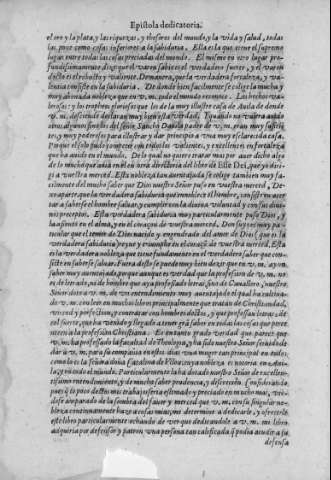 Epistola dedicatoria.
el oro y la plata, y las riquezas, y thesoros del mundo, y la vida y salud, todas
las pone como cosas inferiores a la sabiduria. Ella es la que tiene el supremo
lugar entre todas las cosas preciadas del mundo. El mesmo en otro lugar pro-
fundissimamente dize que el varon sabio es el verdadero fuerte, y el varon
docto es el robusto y valiente. De manera, que la verdadera fortaleza, y va-
lentia consiste en la sabiduria. De donde bien facilmente se colige la mucha y
muy abonada nobleza que en v. m. pudo el mundo
y los tropheos gloriosos que los de la muy illustre casa de Auila de donde
v. m. desciende declaran muy bien esta verdad. Y quando no vuiera auido
otros algunos sino los del señor Sancho Dauila padre de v. m. eran muy suffi-
y muy bastantes para illustrar y dar principio a vna muy esclarecida casa.
Porque el solo pudo competir con todos los valientes, y excellentes en fortaleza
que ha auido en el mundo. De lo qual no quiero tratar mas por auer dicho algo
de lo mucho que auia en el en otra dedicatoria del libro de
a v. m. Esta nobleza tan auentajada se colige tambien muy fa-
cilmente del mucho saber que Dios nuestro Señor puso en vuestra merced. De-
verdadera sabiduria que ennoblece el hombre, consiste en acer-
tar a saberse el hombre saluar, y cumplir con la diuina voluntad y con sus diui-
nos preceptos. Esta verdadera sabiduria muy particularmente puso Dios, y
la assento en el alma, y en el coraçon de vuestra merced.
el temor de Dios nacido y engendrado del amor de Dios (que es la
verdadera sabiduria) reyne y triumphe en el coraçon de vuestra merced. Esta
es la verdadera nobleza que tiene fundamento en el verdadero saber que con-
siste en saberse saluar. Fuera desto se puede muy bien dezir que en v. m. ay vn
saber muy auentajado, porque aunque es verdad que la profession de v. m. no
es de letrado, ni de hombre que aya professado letras, sino de Cauallero, nuestro
Señor dio a v. m. de vn entendimiento muy auentajado el qual ha cultiua-
do v. m. con leer en muchos libros principalmente que tratan de Christiandad,
virtud y perfection, y con tratar con hombres doctos, y que professan letras: de
tal suerte, que ha venido y llegado a tener gran saber en todas las cosas que perte-
nescen a la profession Christiana. En tanto grado verdad que parece que
v. m. ha professado la facultad de Theologia, y ha sido nuestro Señor seruido de
dar a v. m. para su compañia vna muger tan principal en todo,
como lo es la señora doña
la, y en todo el mundo. Particularmente la ha dotado nuestro Señor de excellen-
tissimo entendimiento, y de mucho saber prudencia, y discrecion. Considerando
pues que lo poco destos mis trabajos seria estimado y preciado en mucho mas, vien-
dose amparado de la sombra del fauor y merced que v. m. con su singular no-
bleza continuamente haze a cosas mias, me determine a dedicarle, y ofrecerle
este libro particularmente echando de ver que dedicandole a v. m. mi libro
adquiria por defensor y patron vna persona tan calificada que podia acudir a su
defensa